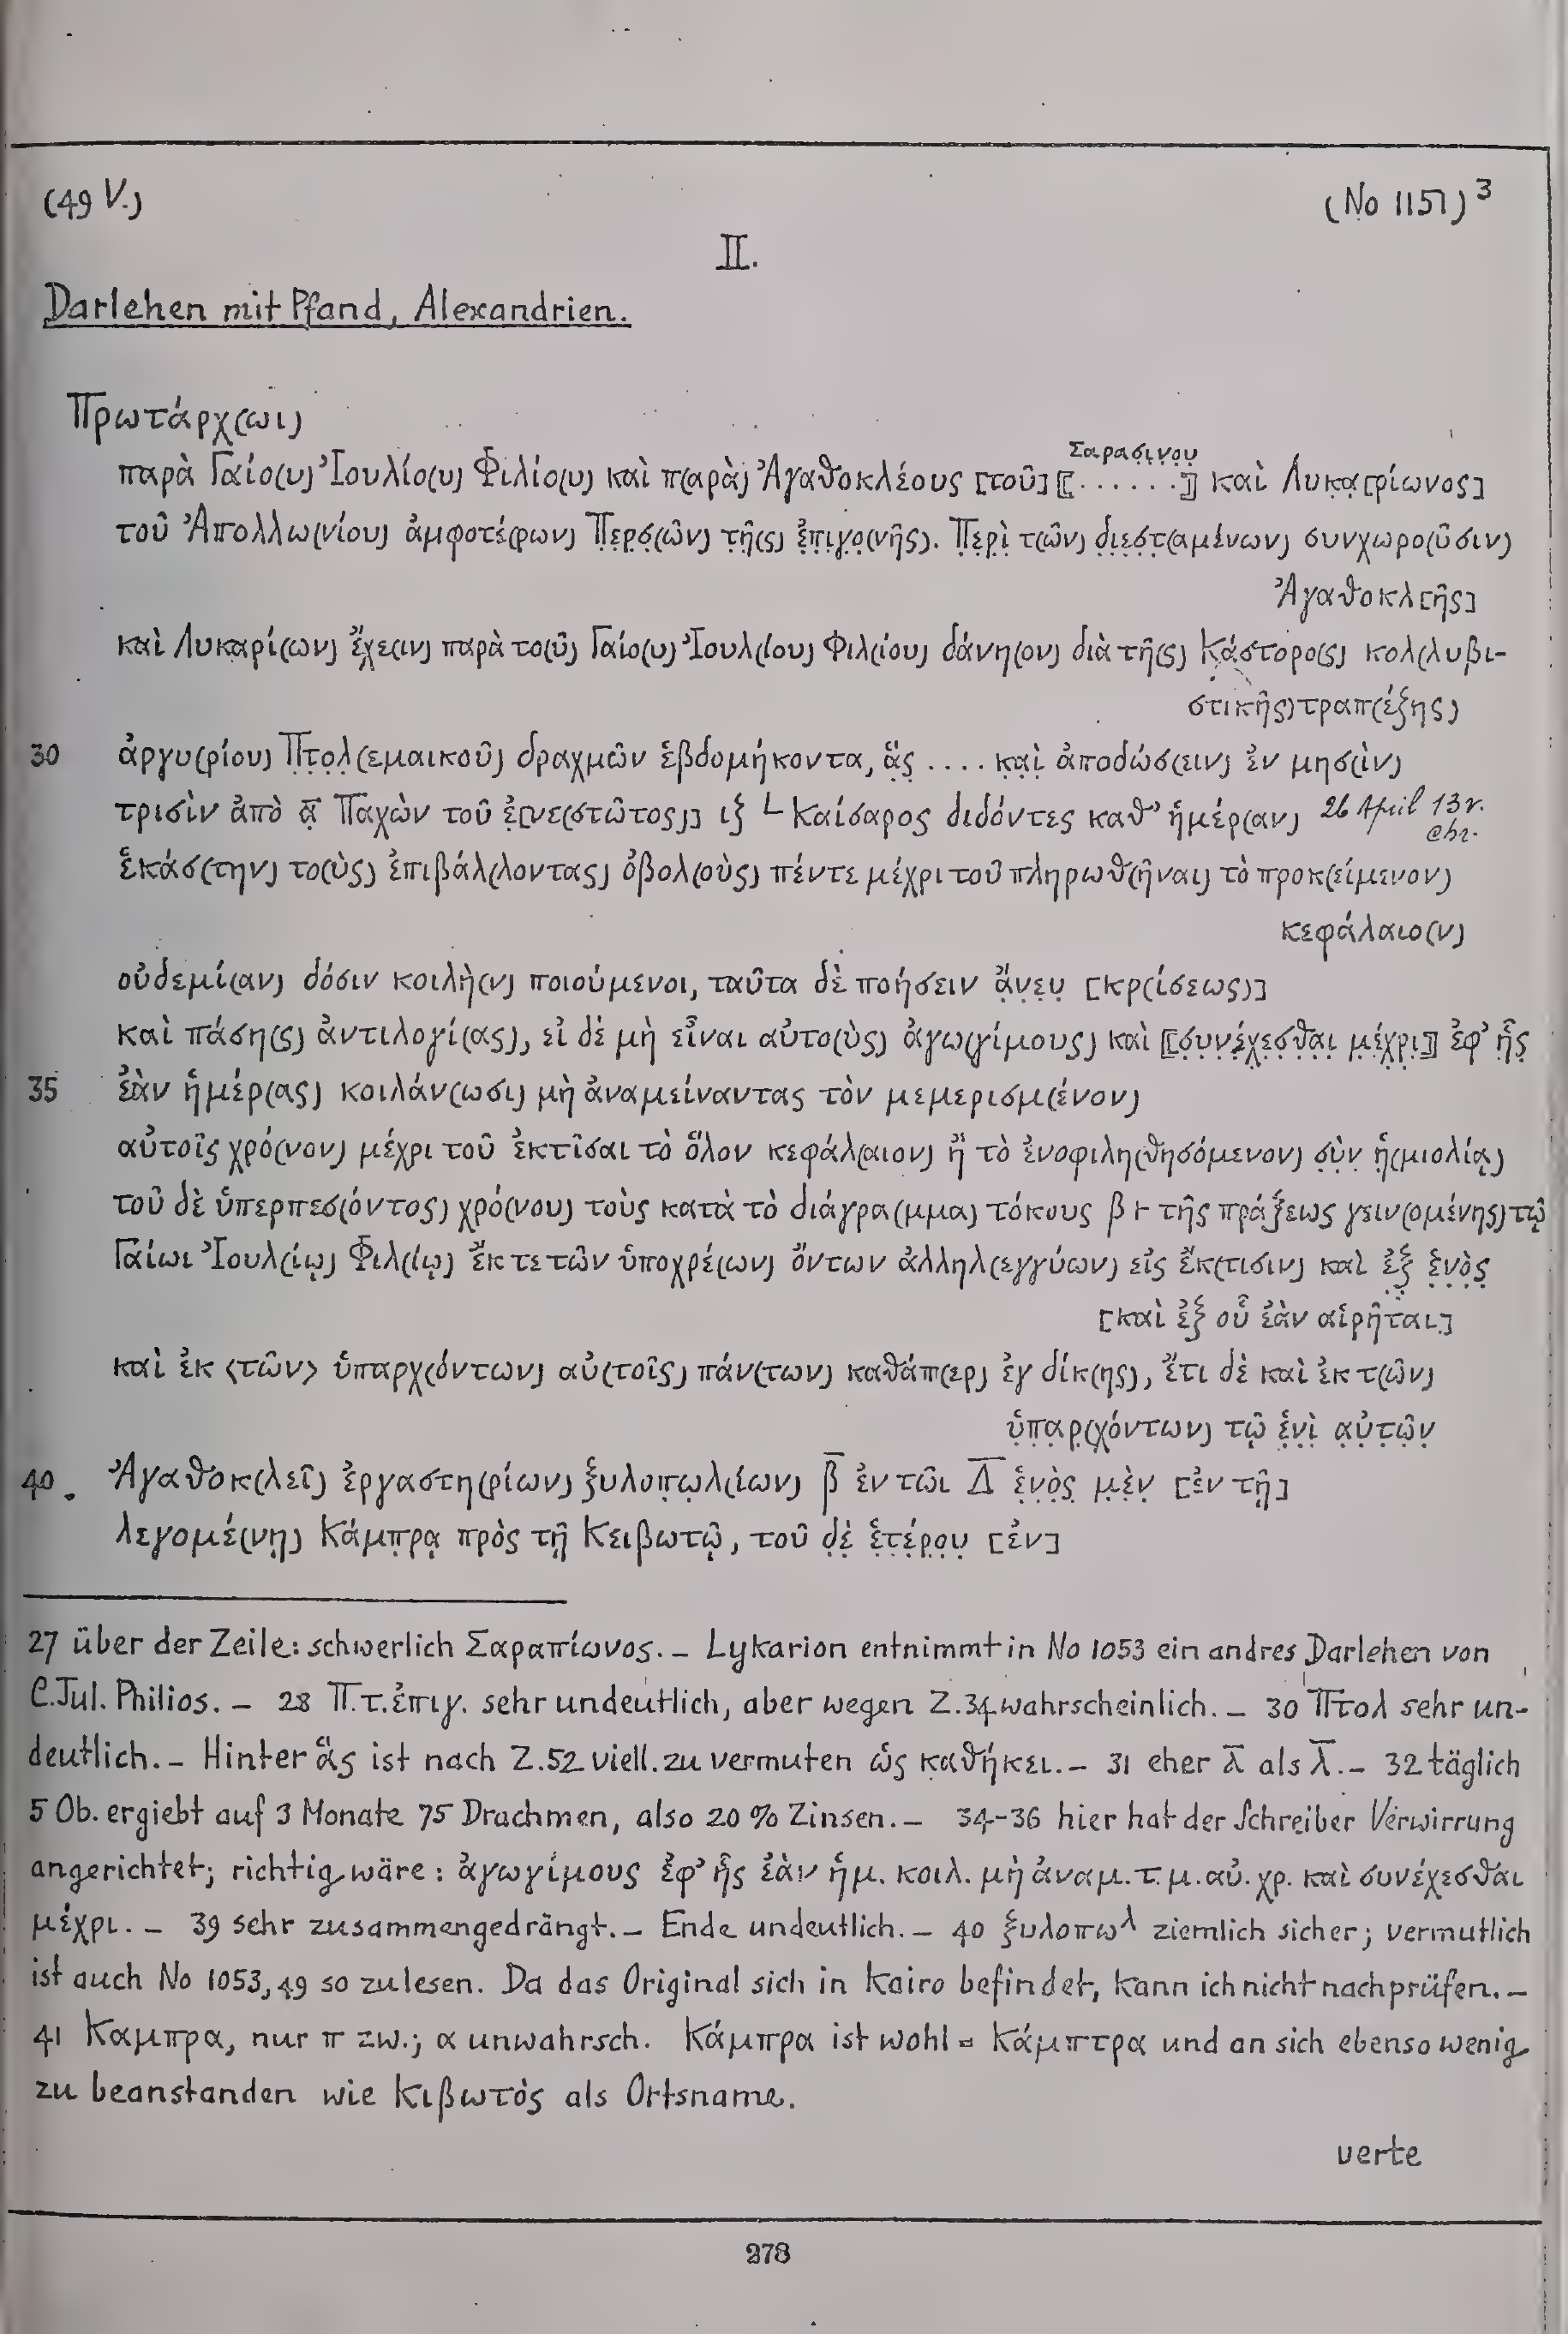 (49 V.)
(No 1151) 3
II.
Darlehen mit Pfand, Alexandrien.
Πρωτάρχ(ωι)
Σαρασίνου
παρὰ Γαίο(υ) Ἰουλίο(υ) Φιλίο(υ) καὶ π(αρὰ) Ἀγαθοκλέους [τοῦ] ⟦......⟧ καὶ Λυκα[ρίωνος]
τοῦ Ἀπολλω(νίου) ἀμφοτέ(ρων) Περσ(ῶν) τῆ(ς) ἐπιγο(νῆς). Περὶ τ(ῶν) διεστ(αμένων) συνχωρο(ῦσιν)
Ἀγαθοκλ[ῆς]
καὶ Λυκαρί(ων) ἔχε(ιν) παρὰ το(ῦ) Γαίο(υ) Ἰουλ(ίου) Φιλ(ίου) δάνη(ον) διὰ τῆ(ς) Κάστορο(ς) κολ(λυβι-
στικῆς) τραπ(έζης)
30 ἀργυ(ρίου) Πτολ(εμαικοῦ) δραχμῶν ἑβδομήκοντα, ἃς .... καὶ ἀποδώσ(ειν) ἐν μησ(ὶν)
τρισὶν ἀπὸ ᾱ Παχὼν τοῦ ἐ[νε(στῶτος)] ιζ └ Καίσαρος διδόντες καθ' ἡμέρ(αν) 26 April 13 v. Chr.
ἑκάσ(την) το(ὺς) ἐπιβάλ(λοντας) ὀβολ(οὺς) πέντε μέχρι τοῦ πληρωθ(ῆναι) τὸ προκ(είμενον)
κεφάλαιο(ν)
οὐδεμί(αν) δόσιν κοιλὴ(ν) ποιούμενοι, ταῦτα δὲ ποήσειν ἄνευ [κρ(ίσεως)]
καὶ πάση(ς) ἀντιλογί(ας), εἰ δὲ μὴ εἶναι αὐτο(ὺς) ἀγω(γίμους) καὶ ⟦συνέχεσθαι μέχρι⟧ ἐφ' ἧς
35 ἐὰν ἡμέρ(ας) κοιλάν(ωσι) μὴ ἀναμείναντας τὸν μεμερισμ(ένον)
αὐτοῖς χρό(νον) μέχρι τοῦ ἐκτῖσαι τὸ ὅλον κεφάλ(αιον) ἢ τὸ ἐνοφιλη(θησόμενον) σὺν ἡ(μιολίᾳ)
τοῦ δὲ ὑπερπεσ(όντος) χρό(νου) τοὺς κατὰ τὸ διάγρα(μμα) τόκους β ⊦ τῆς πράξεως γειν(ομένης) τῷ
Γαίωι Ἰουλ(ίῳ) Φιλ(ίῳ) ἔκ τε τῶν ὑποχρέ(ων) ὄντων ἀλληλ(εγγύων) εἰς ἔκ(τισιν) καὶ ἐξ ἑνὸς
[καὶ ἐξ οὗ ἐὰν αἱρῆται]
καὶ ἐκ <τῶν> ὑπαρχ(όντων) αὐ(τοῖς) πάν(των) καθάπ(ερ) ἐγ δίκ(ης), ἔτι δὲ καὶ ἐκ τ(ῶν)
ὑπαρ(χόντων) τῷ ἑνὶ αὐτῶν
40. Ἀγαθοκ(λεῖ) ἐργαστη(ρίων) ξυλοπωλ(ίων) β̄ ἐν τῶι Δ̄ ἑνὸς μὲν [ἐν τῇ]
λεγομέ(νῃ) Κάμπρᾳ πρὸς τῇ Κειβωτῷ, τοῦ δὲ ἑτέρου [ἐν]
27 über der Zeile: schwerlich Σαραπίωνος. – Lykarion entnimmt in No 1053 ein andres Darlehen von
C. Jul. Philios. – 28 Π.τ.ἐπιγ. sehr undeutlich, aber wegen Z. 34 wahrscheinlich. – 30 Πτολ sehr un-
deutlich. – Hinter ἃς ist nach Z. 52 viell. zu vermuten ὡς καθήκει. – 31 eher ᾱ als λ̄. – 32 täglich
5 Ob. ergiebt auf 3 Monate 75 Drachmen, also 20 % Zinsen. – 34–36 hier hat der Schreiber Verwirrung
angerichtet; richtig wäre: ἀγωγίμους ἐφ' ἧς ἐὰν ἡμ. κοιλ. μὴ ἀναμ. τ. μ. αὐ. χρ. καὶ συνέχεσθαι
μέχρι. – 39 sehr zusammengedrängt. – Ende undeutlich. – 40 ξυλοπωλ ziemlich sicher; vermutlich
ist auch No 1053, 49 so zu lesen. Da das Original sich in Kairo befindet, kann ich nicht nachprüfen. –
41 Καμπρα, nur π zw.; α unwahrsch. Κάμπρα ist wohl = Κάμπτρα und an sich ebenso wenig
zu beanstanden wie Κιβωτὸς als Ortsname.
verte
278